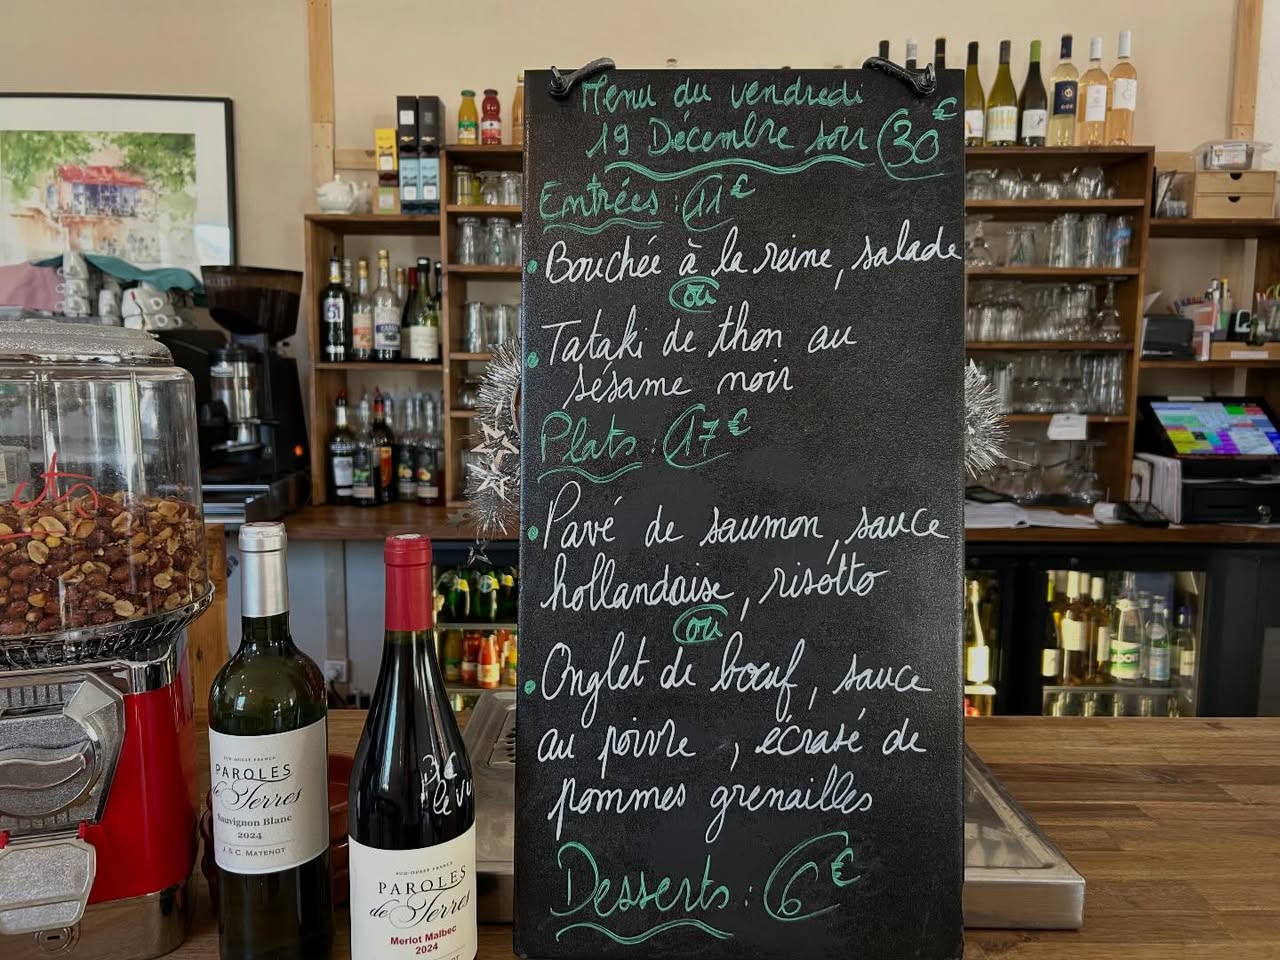 Menu du vendredi
19 Décembre soir 30€
Entrées : 11€
• Bouchée à la reine, salade
ou
• Tataki de thon au
sésame noir
Plats : 17€
• Pavé de saumon, sauce
hollandaise, risotto
ou
• Onglet de bœuf, sauce
au poivre, écrasé de
pommes grenailles
Desserts : 6€
SUD-OUEST FRANCE
PAROLES
de Terres
Sauvignon Blanc
2024
J. & C. MATENOT
3€
le v
SUD-OUEST FRANCE
PAROLES
de Terres
Merlot Malbec
2024